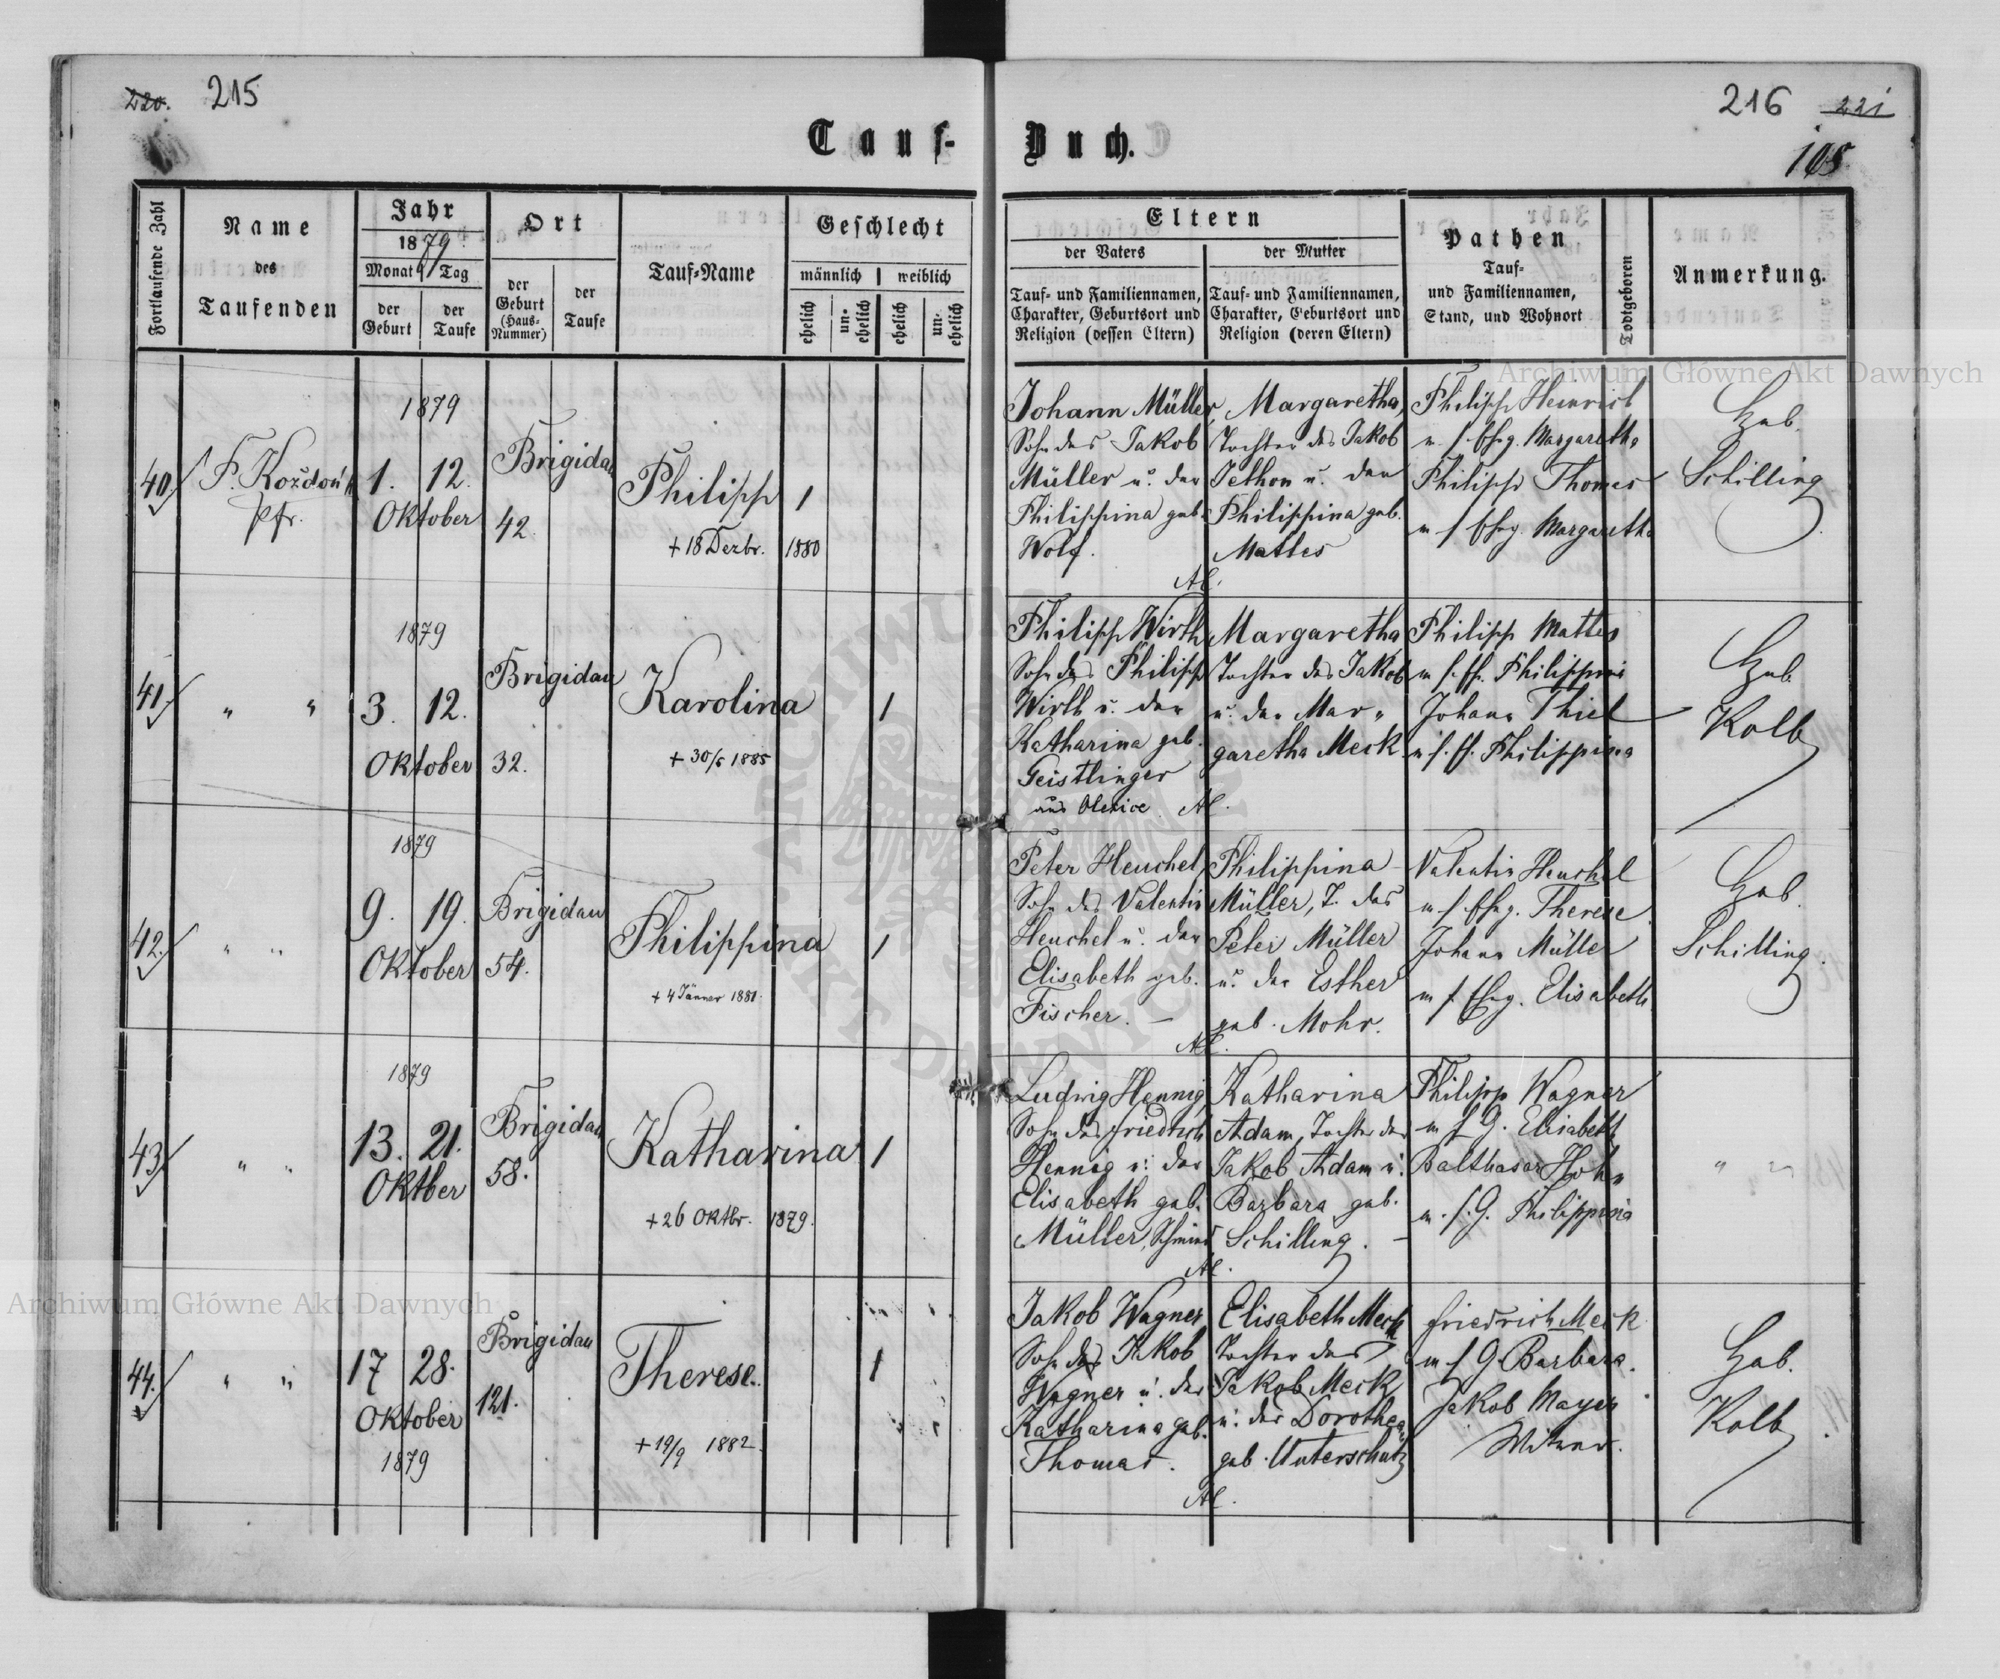 220. 215
Tauf-
Fortlaufende Zahl
Name
des
Taufenden
Jahr
1879
Monat Tag
der
Geburt
der
Taufe
Ort
der
Geburt
(Haus-
Nummer)
der
Taufe
Tauf-Name
Geschlecht
männlich weiblich
ehelich
un-
ehelich
ehelich
un-
ehelich
40
F. Kozdoń
Pfr.
1879
1. 12.
Oktober
Brigidau
42.
Philipp
+ 18 Dezbr. 1880
1
41
" "
1879
3. 12.
Oktober
Brigidau
32.
Karolina
+ 30/5 1885
1
42.
" "
1879
9. 19.
Oktober
Brigidau
54.
Philippina
+ 4 Jänner 1881.
1
43
" "
1879
13. 21.
Oktber
Brigidau
58.
Katharina
+ 26 Oktbr. 1879.
1
44.
" "
17 28.
Oktober
1879
Brigidau
121.
Therese.
+ 19/9 1882.
1
216 221
108.
Buch.
Eltern
der Vaters
Tauf- und Familiennamen,
Charakter, Geburtsort und
Religion (dessen Eltern)
der Mutter
Tauf- und Familiennamen,
Charakter, Geburtsort und
Religion (deren Eltern)
Pathen
Tauf-
und Familiennamen,
Stand, und Wohnort
Todtgeboren
Anmerkung.
Johann Müller,
Sohn des Jakob
Müller u. der
Philippina geb.
Wolf.
Margaretha,
Tochter des Jakob
Jethon u. der
Philippina geb.
Mattes
Al.
Philipp Heinrich
u. s. Ehrg. Margaretha
Philipp Thomas
u s Ehrg. Margaretha
Heb.
Schilling
Philipp Wirth
Sohn des Philipp
Wirth u. der
Katharina geb.
Geistlinger
aus Olexice. Al.
Margaretha
Tochter des Jakob
u. der Mar-
garetha Meck
Philipp Mattes
Philippina
Johann Thiel
Philippina
Heb.
Kolb
Peter Heuchel,
Sohn des Valentin
Heuchel u. der
Elisabeth geb.
Fischer. —
Philippina
Müller, T. des
Peter Müller
u. der Esther
geb. Mohr.
Al.
Valentin Heuchel
u s Ehrg. Therese.
Johann Müller
u s. Ehrg. Elisabeth
Heb.
Schilling.
Ludwig Hennig,
Sohn des Friedrich
Hennig u. der
Elisabeth geb.
Müller, Schmied
Katharina
Adam, Tochter des
Jakob Adam u.
Barbara geb.
Schilling. —
Al.
Philipp Wagner
u s G. Elisabeth
Balthasar Hohn
u. s. G. Philippina
" "
Jakob Wagner,
Sohn des Jakob
Wagner u. der
Katharina geb.
Thomas.
Elisabeth Meck
Tochter des
Jakob Meck
u. der Dorothea
geb. Unterschütz
Al.
Friedrich Meck
u s G. Barbara.
Jakob Mayer
Witwer.
Heb.
Kolb
Archiwum Główne Akt Dawnych
Archiwum Główne Akt Dawnych
ARCHIWUM GŁÓWNE AKT DAWNYCH